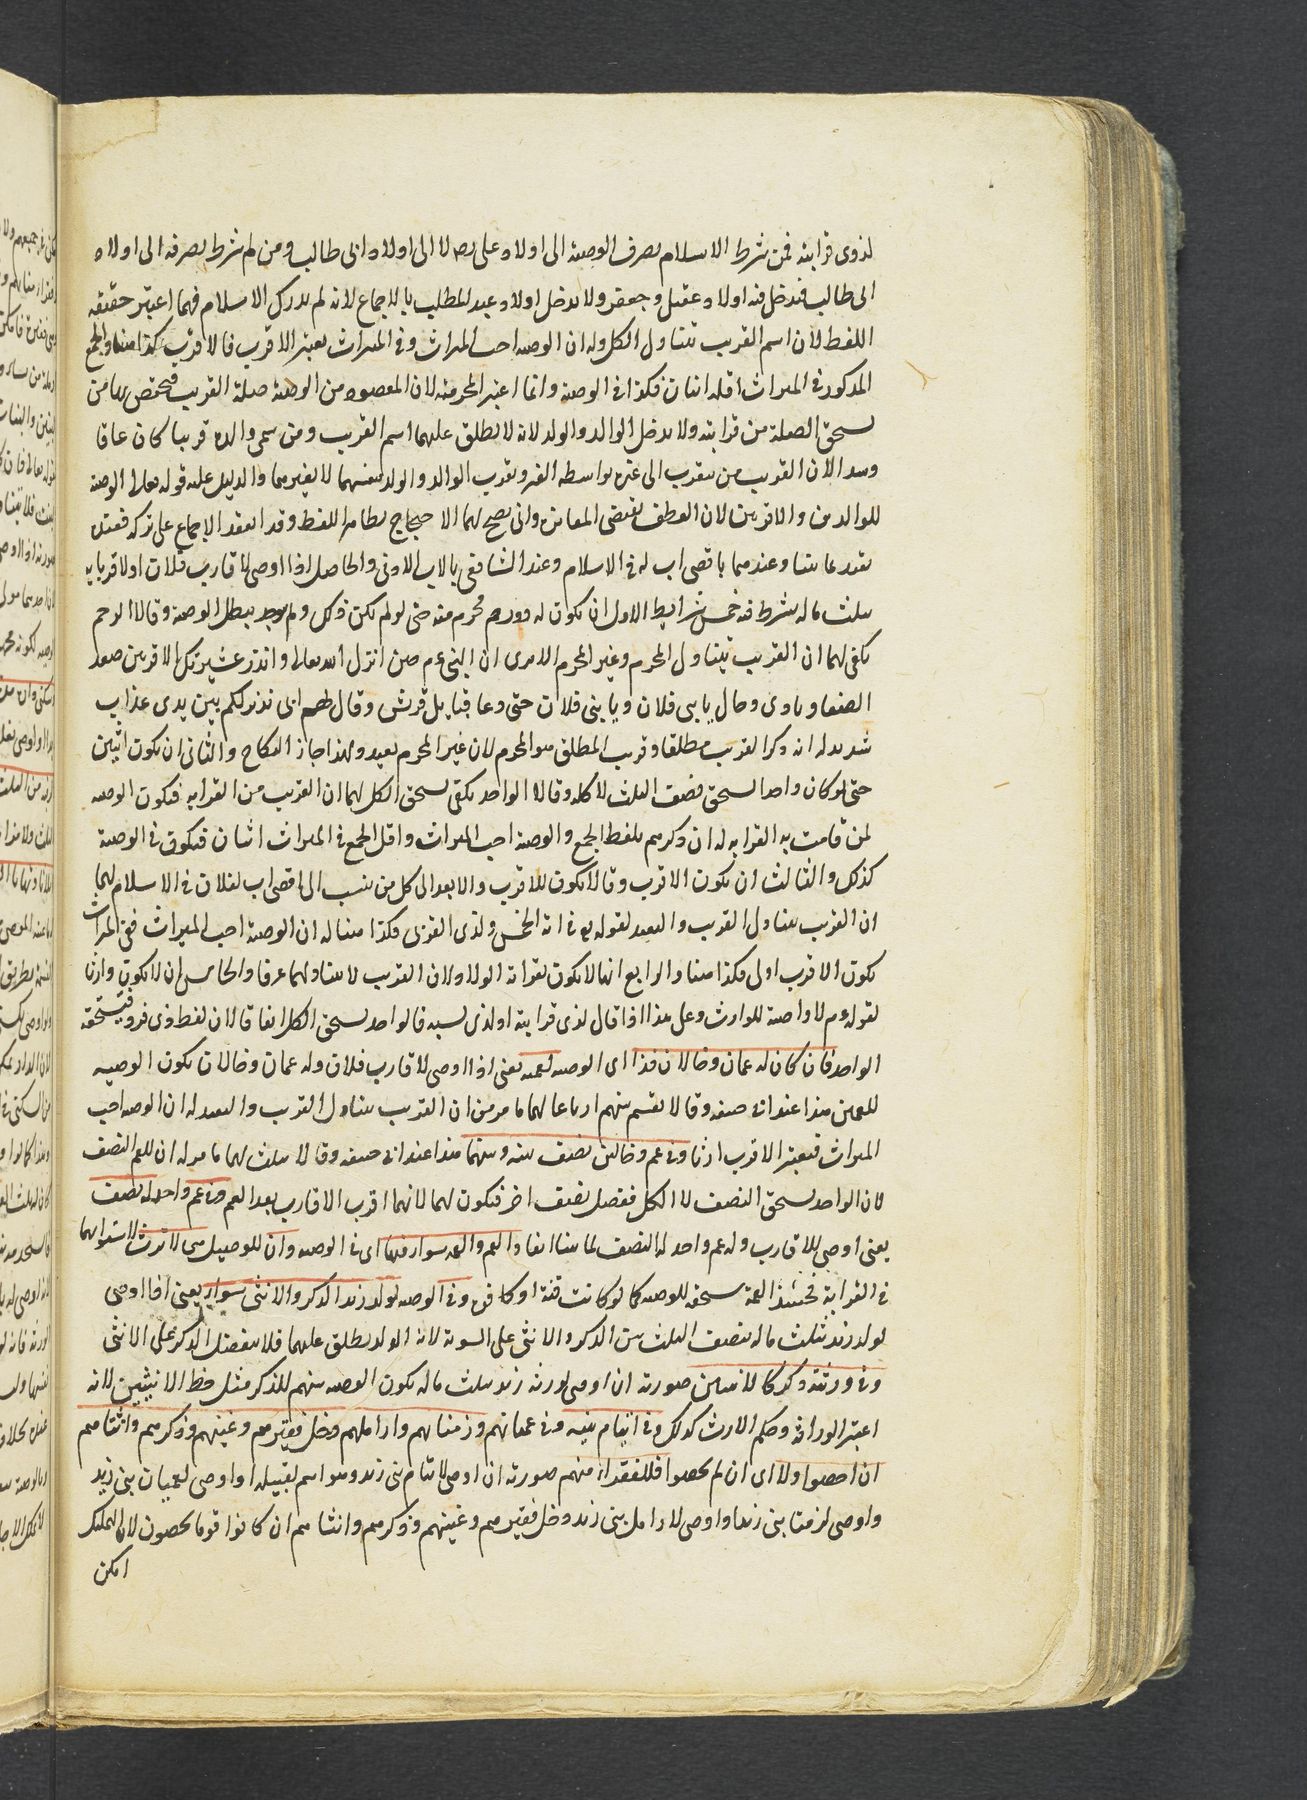 لذوى قرابته فمن شرط الاسلام يصرف الوصية الى اولاد على رضه لا الى اولاد ابى طالب ومن لم يشرط يصرفه الى اولاد
ابى طالب فيدخل فيه اولاد عقيل وجعفر ولا يدخل اولاد عبد المطلب بالاجماع لانه لم يدرك الاسلام فهما اعتبرا حقيقة
اللفظ لان اسم القريب يتناول الكل وله ان الوصية اخت الميراث وفى الميراث يعتبر الاقرب فالاقرب كذا هنا والجمع
المذكور فى الميراث اقله اثنان فكذا فى الوصية وانما اعتبر المحرمية لان المقصود من الوصية صلة القريب فيختص بها من
يستحق الصلة من قرابته ولا يدخل الوالد والولد لانه لا يطلق عليهما اسم القريب ومن سمى والده قريبا كان عاقا
وهذا لان القريب من يتقرب الى غيره بواسطة الغير وتقرب الوالد والولد بنفسهما لا بغيرهما والدليل عليه قوله تعالى الوصية
للوالدين والاقربين لان العطف يقتضى المغايرة وانى يصح لهما الاحتجاج بظاهر اللفظ وقد انعقد الاجماع على تركه فعنده
يقيد بما بينا وعندهما باقصى اب له فى الاسلام وعند الشافعى بالاب الادنى والحاصل اذا اوصى لاقارب فلان او لاقربايه
بثلث ماله يشرط فيه خمس شرايط الاول ان يكون له ذو رحم محرم منه حتى لو لم يكن ذلك ولم يوجد يبطل الوصية وقالا الرحم
يكفى لهما ان القريب يتناول المحرم وغير المحرم الا يرى ان النبى عم حين انزل الله تعالى وانذر عشيرتك الاقربين صعد
الصفا ونادى وقال يا بنى فلان ويا بنى فلان حتى دعا قبايل قريش وقال لهم انى نذير لكم بين يدى عذاب
شديد له انه ذكر القريب مطلقا وقريب المطلق هو المحرم لان غير المحرم بعيد ولهذا جاز النكاح والثانى ان يكون اثنين
حتى لو كان واحدا يستحق نصف الثلث لا كله وقالا الواحد يكفى يستحق الكل لهما ان القريب من القرابه فيكون الوصيه
لمن قامت به القرابه له ان ذكرهم بلفظ الجمع والوصية اخت الميراث واقل الجمع فى الميراث اثنان فيكون فى الوصية
كذلك والثالث ان يكون الاقرب وقالا يكون للاقرب والابعد الى كل من ينسب الى اقصى اب لفلان فى الاسلام لهما
ان القرب يتناول القريب والبعيد لقوله فى اية الخمس ولذى القربى فكذا هنا له ان الوصية اخت الميراث ففى الميراث
يكون الاقرب اولى فكذا هنا والرابع انها لا يكون بقرابة الولاد لان القريب لا يتناولهما عرفا والخامس ان لا يكون وارثا
لقوله عم لا وصية للوارث وعلى هذا اذا قال لذى قرابته او لذى نسبه فالواحد يستحق الكل اتفاقا لان لفظ ذى فرد فيستحقه
الواحد فان كان له عمان وخالان فذا اى الوصية لعميه يعنى اذا اوصى لاقارب فلان وله عمان وخالان يكون الوصية
للعمين هذا عند ابى حنيفه وقالا يقسم بينهم ارباعا لهما ما مر من ان القريب يتناول القريب والبعيد له ان الوصيه اخت
الميراث فيعتبر الاقرب ارثا وفى عم وخالين نصف بينه وبينهما هذا عند ابى حنيفه وقالا يثلث لهما ما مر له ان للعم النصف
لان الواحد يستحق النصف لا الكل ففضل نصف اخر فيكون لهما لانهما اقرب الاقارب بعد العم وفى عم واحد له نصف
يعنى اوصى للاقارب وله عم واحد له النصف لما بينا انفا والعم والعمه سواء فيها اى فى الوصيه وان لم ترث لاستوايهما
فى القرابة فحينئذ العمة يستحق للوصيه كما لو كانت قنة او كافره وفى الوصيه لولد زيد الذكر والانثى سواء يعنى اذا اوصى
لولد زيد بثلث ماله ينصف الثلث بين الذكر والانثى على السوية لانه الولد يطلق عليهما فلا يفضل الذكر على الانثى
وفى ورثته ذكر كالانثيين صورته ان اوصى لورثة زيد بثلث ماله يكون الوصيه بينهم للذكر مثل حظ الانثيين لانه
اعتبر الوراثه وحكم الارث كذلك وفى ايتام بنيه وفى عميانهم وزمناهم واراملهم دخل فقيرهم وغنيهم وذكرهم وانثاهم
ان احصوا والا اى ان لم يحصوا فللفقراء منهم صورته ان اوصى لايتام بنى زيد وهو اسم لقبيله او اوصى لعميان بنى زيد
واوصى لزمنا بنى زيد او اوصى لارامل بنى زيد دخل فقيرهم وغنيهم وذكرهم وانثاهم ان كانوا قوما يحصون لان التمليك
امكن